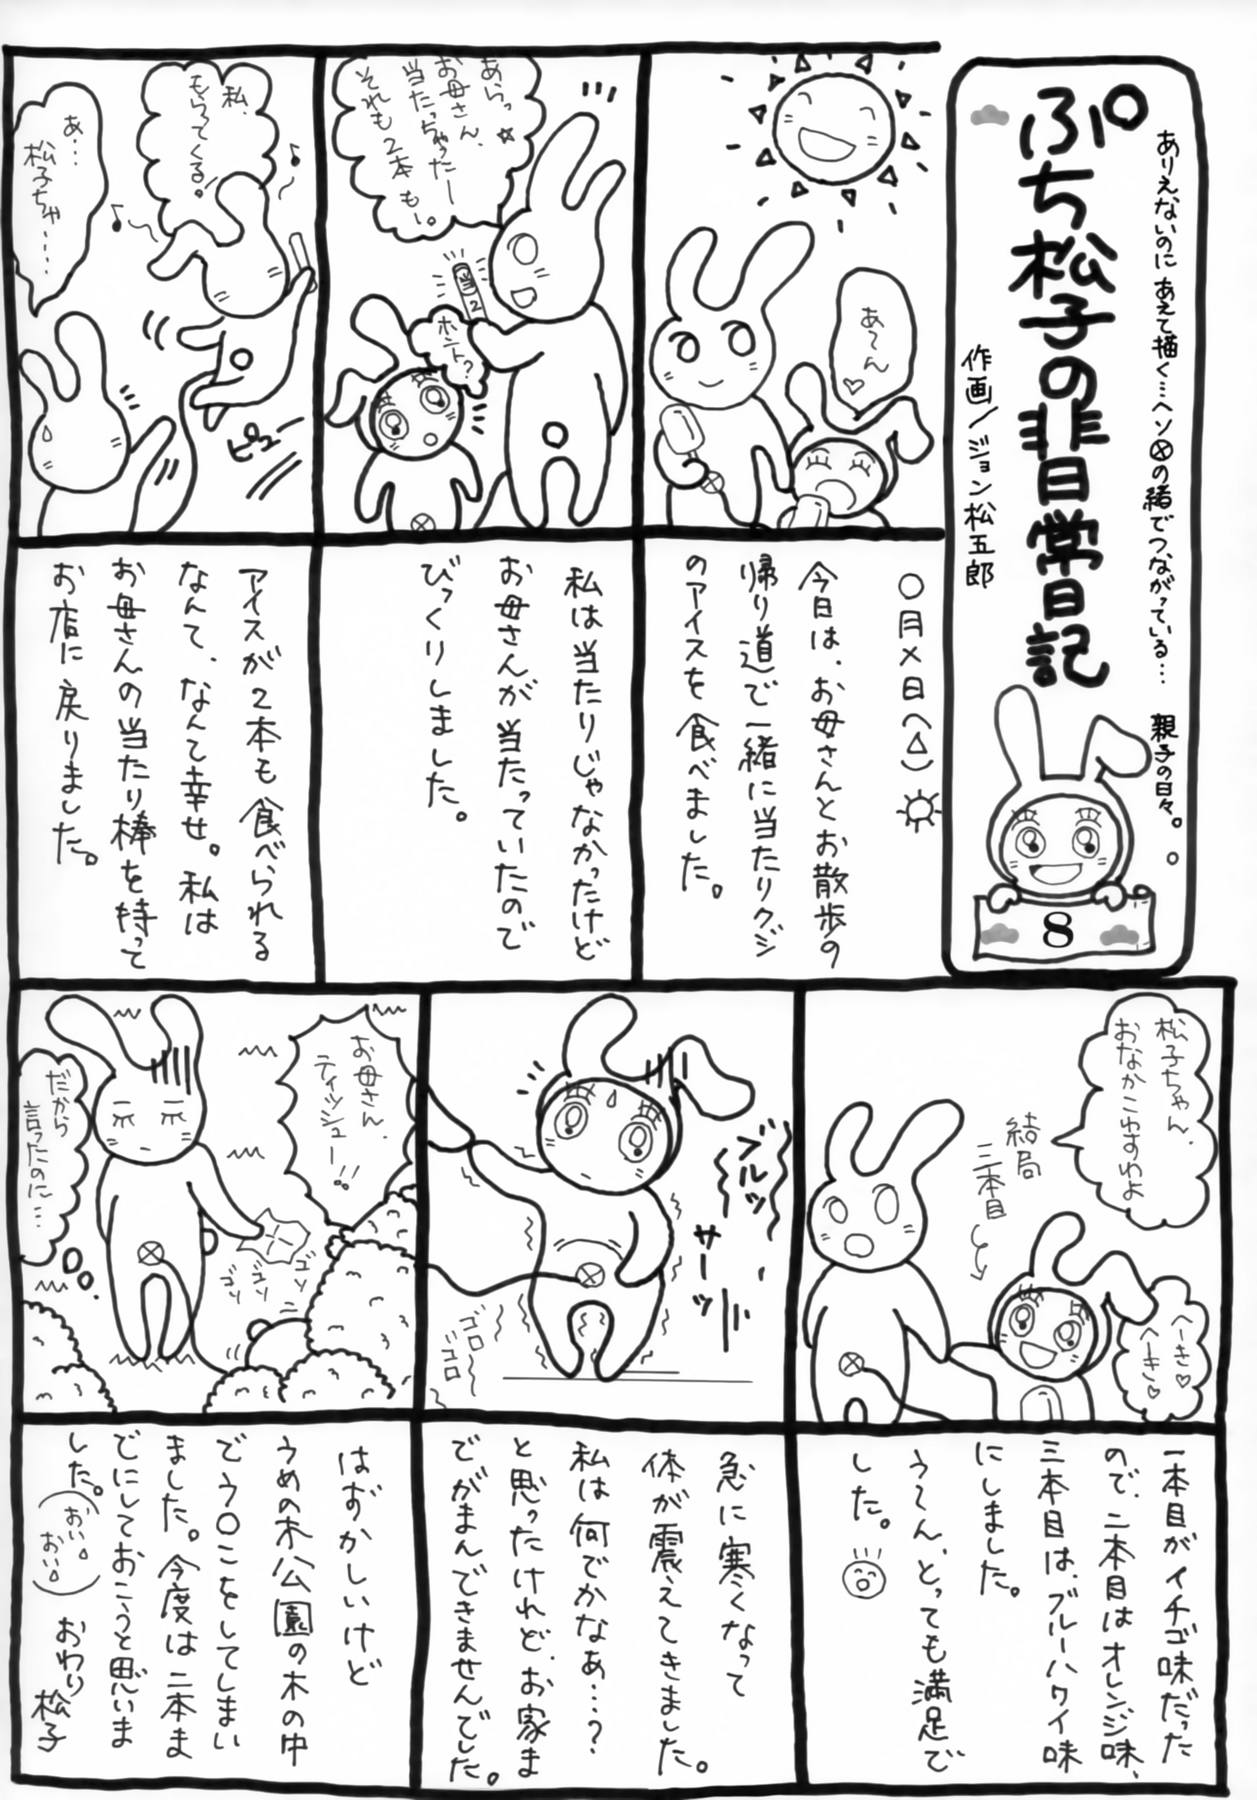 ありえないのに あえて描く…ヘソ⊗の緒でつながっている… 親子の日々。
ぷち松子の非日常日記
作画／ジョン松五郎
8
あ〜ん♡
〇月×日(△)☼
今日は、お母さんとお散歩の
帰り道で一緒に当たりクジ
のアイスを食べました。
あらっ☆
お母さん、
当たっちゃったー
それも2本も。
当2
ホント?
私は当たりじゃなかったけど
お母さんが当たっていたので
びっくりしました。
私、
もらってくる♪
あ…
松子ちゃ……
ピュー
アイスが2本も食べられる
なんて、なんて幸せ。私は
お母さんの当たり棒を持って
お店に戻りました。
松子ちゃん、
おなかこわすわよ
結局
三本目
へーき♡
へーき♡
一本目がイチゴ味だった
ので、二本目はオレンジ味、
三本目は、ブルーハワイ味
にしました。
う〜ん、とっても満足で
した。
ブルッ
サーッ
ゴロ〜
ゴロゴロ
急に寒くなって
体が震えてきました。
私は何でかなぁ…?
と思ったけれど、お家ま
でがまんできませんでした。
お母さん、
ティッシュー!!
ゴソ
ゴソ
ゴソ
だから
言ったのに…
はずかしいけど
うめの木公園の木の中
でう〇こをしてしまい
ました。今度は二本ま
でにしておこうと思いま
した。
(おい。おい。)
おわり
松子